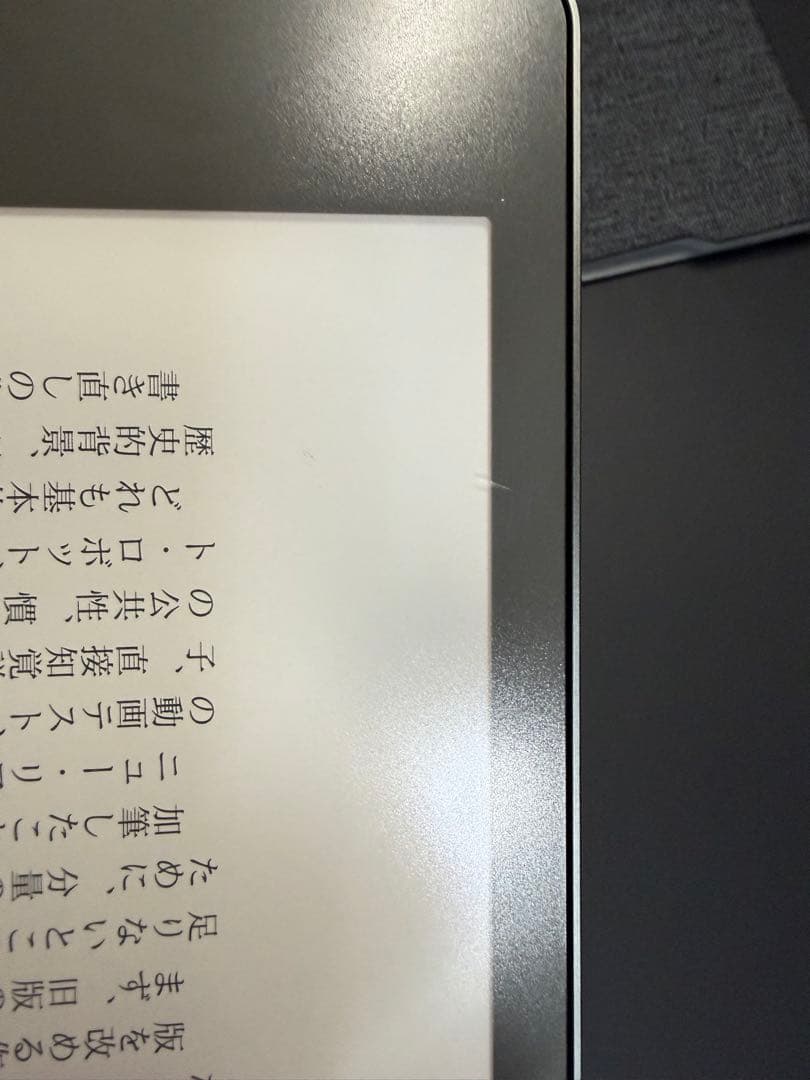 版を改める
まず、旧版の
足りないとこ
ために、分量の
加筆したこと
ニュー・リ
の動画テスト、
子、直接知覚
の公共性、慣
ト・ロボット、
どれも基本
歴史的背景、
書き直しの